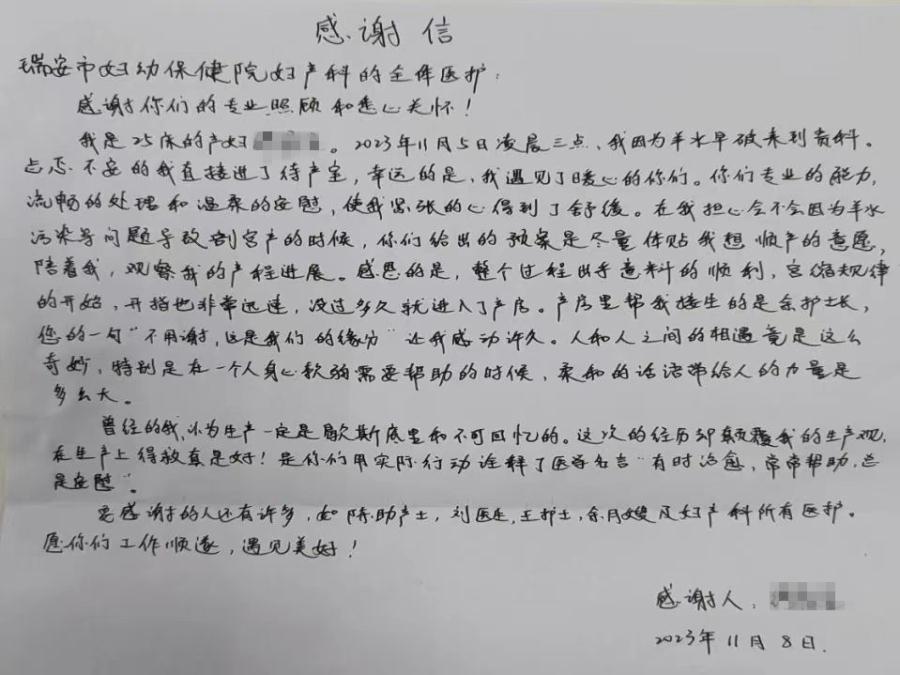 感谢信
瑞安市妇幼保健院妇产科的全体医护:
感谢你们的专业照顾和悉心关怀!
我是25床的产妇 。2023年11月5日凌晨三点、我因为羊水早破来到贵科。
忐忑不安的我直接进了待产室,幸运的是、我遇见了暖心的你们。你们专业的能力,
流畅的处理和温柔的安慰,使我紧张的心得到了舒缓。在我担心会不会因为羊水
污染等问题导致剖宫产的时候,你们给出的预案是尽量体贴我想顺产的意愿,
陪着我,观察我的产程进展。感恩的是,整个过程出乎意料的顺利,宫缩规律
的开始,开指也非常迅速,没过多久就进入了产房。产房里帮我接生的是余护士长,
您的一句"不用谢,这是我们的缘分"让我感动许久。人和人之间的相遇竟是这么
奇妙,特别是在一个人身心软弱需要帮助的时候,柔和的话语带给人的力量是
多么大。
曾经的我,以为生产一定是歇斯底里和不可回忆的。这次的经历却颠覆我的生产观,
在生产上得救真是好!是你们用实际行动诠释了医学名言"有时治愈,常常帮助,总
是安慰"。
要感谢的人还有许多,如陈助产士,刘医生,王护士,余月嫂及妇产科所有医护。
愿你们工作顺遂,遇见美好!
感谢人:
2023年11月8日.